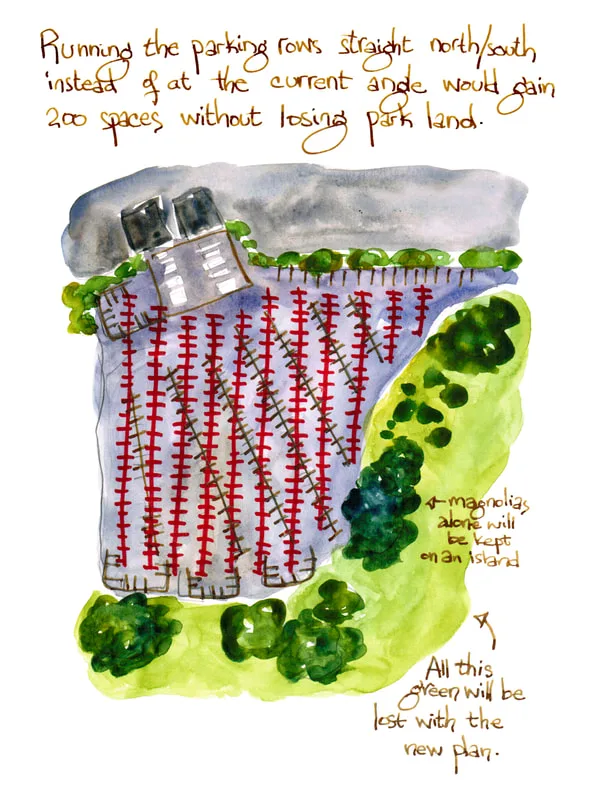 Running the parking rows straight north/south
instead of at the current angle would gain
200 spaces without losing park land.
←magnolias
alone will
be kept
on an island
All this
green will be
lost with the
new plan.